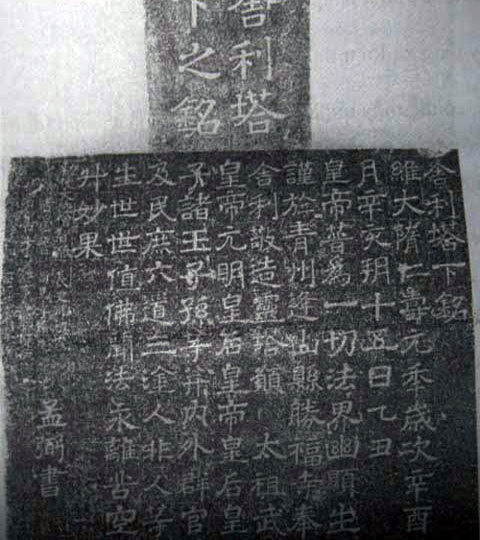 舍利塔
下之銘
舍利塔下銘
維大隋仁壽元年歲次辛酉
月辛亥朔十五日乙丑
皇帝普為一切法界幽顯生
謹於青州逢山縣勝福寺奉
舍利敬造靈塔願太祖武
皇帝元明皇后皇帝皇后皇
子諸王子孫等并內外群官
及民庶六道三塗人非人等
生世世值佛聞法永離苦空
升妙果
孟弼書